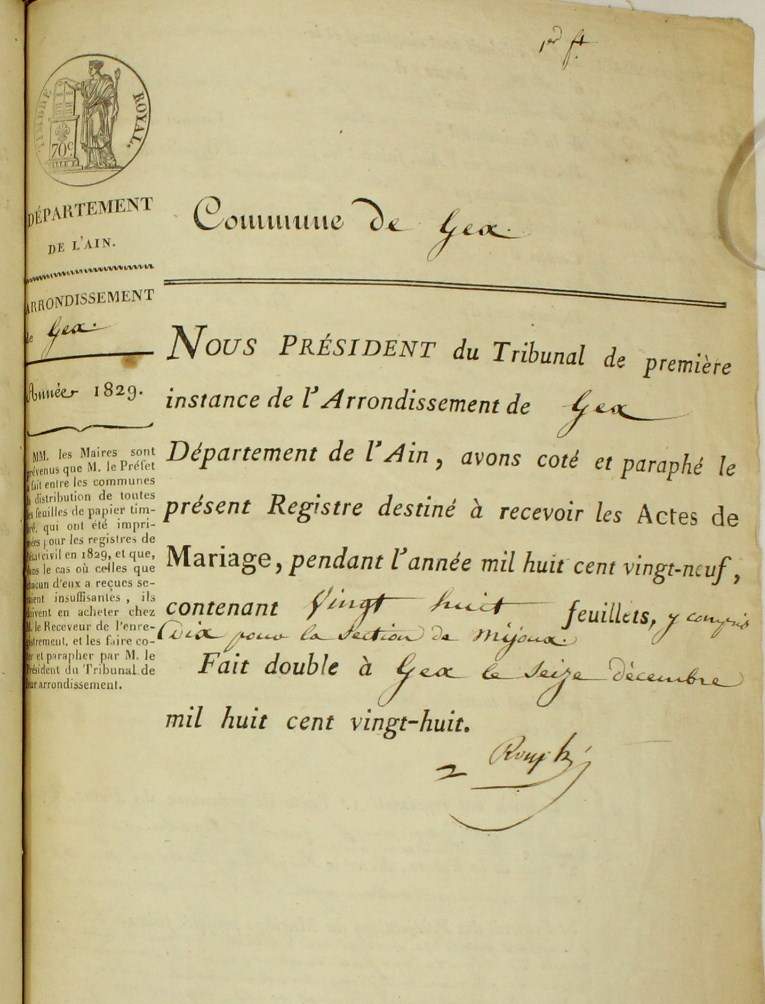 1er ft
TIMBRE ROYAL.
70c
DÉPARTEMENT
DE L'AIN.
ARRONDISSEMENT
de Gex.
Année 1829.
MM. les Maires sont
prévenus que M. le Préfet
a fait entre les communes
la distribution de toutes
les feuilles de papier tim-
bré, qui ont été impri-
mées pour les registres de
l'état civil en 1829, et que,
dans le cas où celles que
chacun d'eux a reçues se-
raient insuffisantes, ils
doivent en acheter chez
M. le Receveur de l'enre-
gistrement, et les faire co-
ter et parapher par M. le
Président du Tribunal de
leur arrondissement.
Commune de Gex.
NOUS PRÉSIDENT du Tribunal de première
instance de l'Arrondissement de Gex
Département de l'Ain, avons coté et paraphé le
présent Registre destiné à recevoir les Actes de
Mariage, pendant l'année mil huit cent vingt-neuf,
contenant Vingt huit feuillets, y compris
Dix pour la section de mijoux.
Fait double à Gex le seize décembre
mil huit cent vingt-huit.